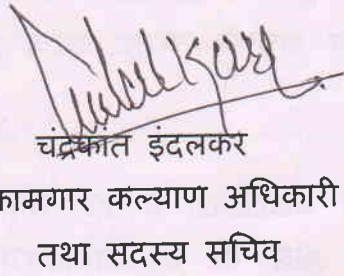 चंद्रकांत इंदलकर
कामगार कल्याण अधिकारी
तथा सदस्य सचिव